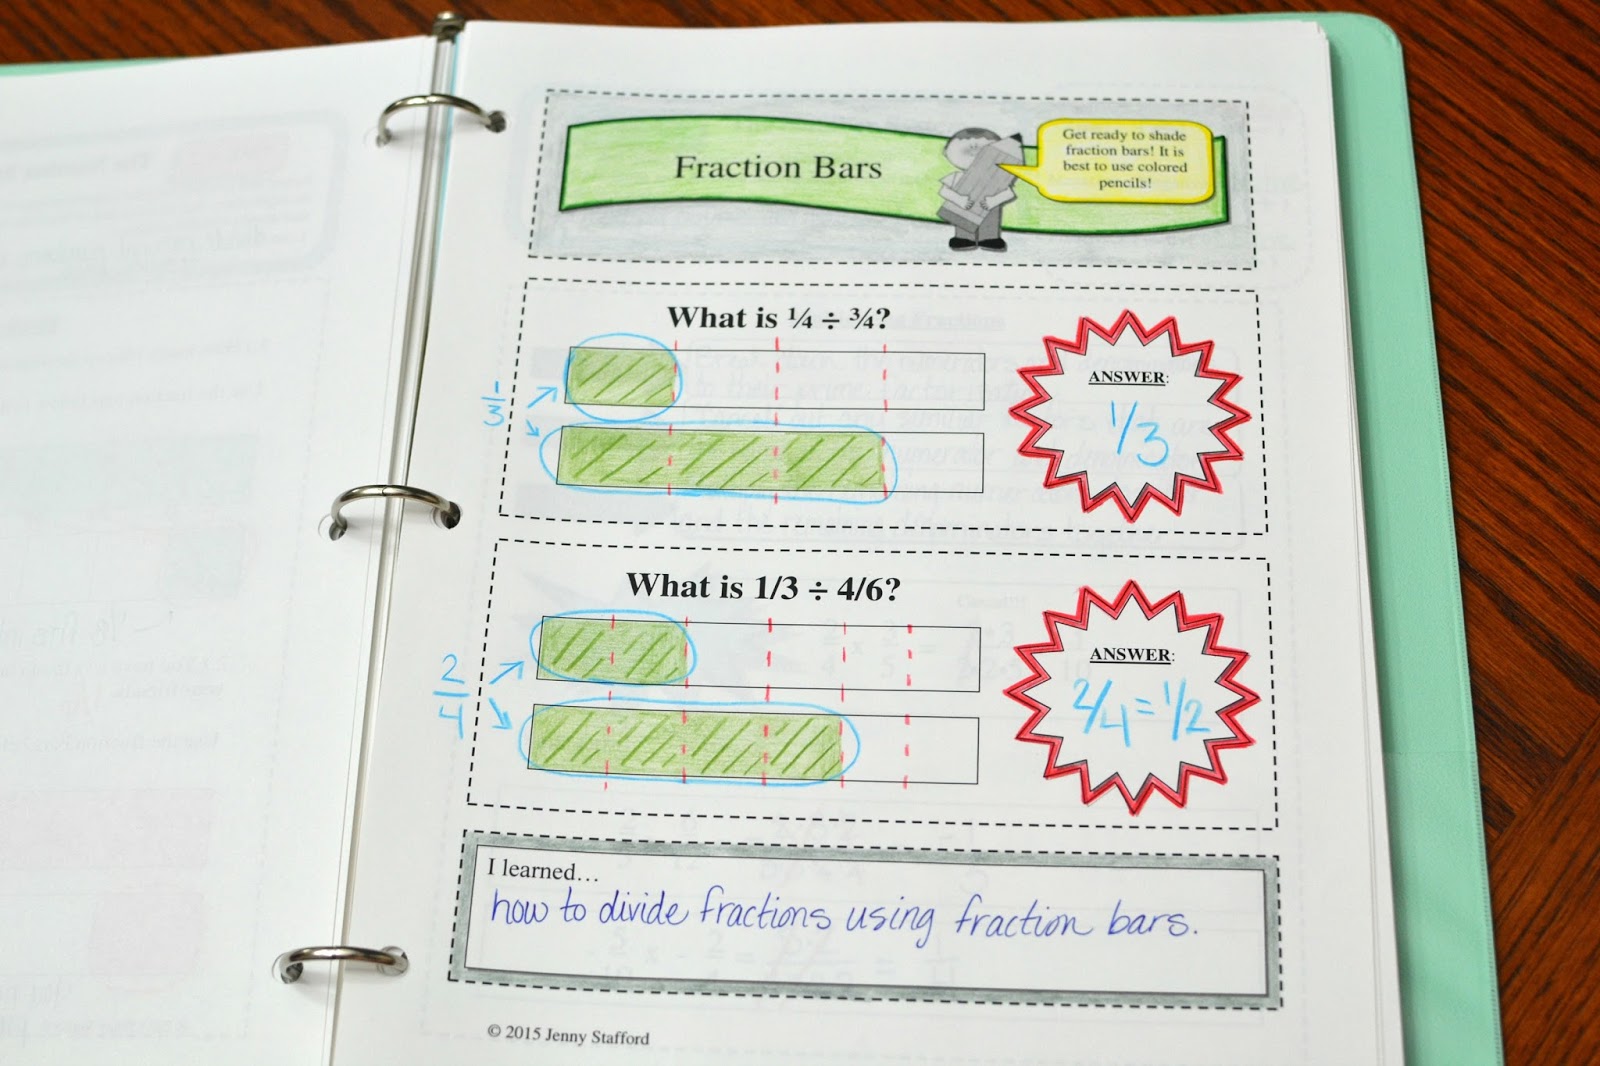 Fraction Bars
Get ready to shade
fraction bars! It is
best to use colored
pencils!
What is ¼ ÷ ¾?
1/3
ANSWER:
1/3
What is 1/3 ÷ 4/6?
2/4
ANSWER:
2/4=1/2
I learned...
how to divide fractions using fraction bars.
© 2015 Jenny Stafford